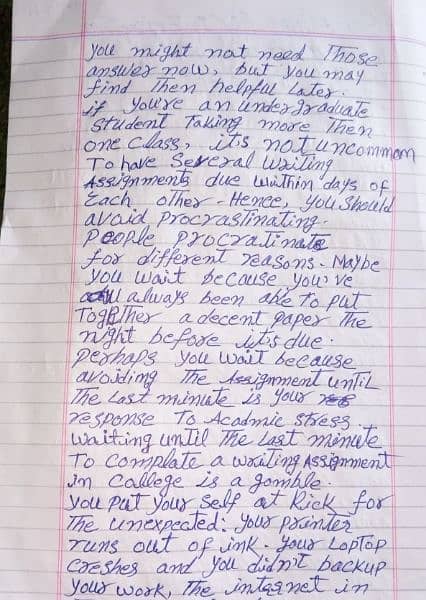 you might not need Those
answer now, but you may
find Them helpful Later.
if you're an undergraduate
student Taking more Then
one class, it's not uncommom
To have Several writing
Assignments due within days of
Each other - Hence, you should
avoid procrastinating.
People procratinate
for different reasons. Maybe
you wait because you've
always been able to put
Together a decent paper The
night before it's due.
perhaps you wait because
avoiding The Assignment until
The Last minute is your
response To Acadmic stress.
waiting until The Last minute
To complate a writing Assignment
in College is a gomble.
you put your self at Rick for
The unexpected: your printer
runs out of ink. your Loptop
creshes and you didn't backup
your work, The internet in